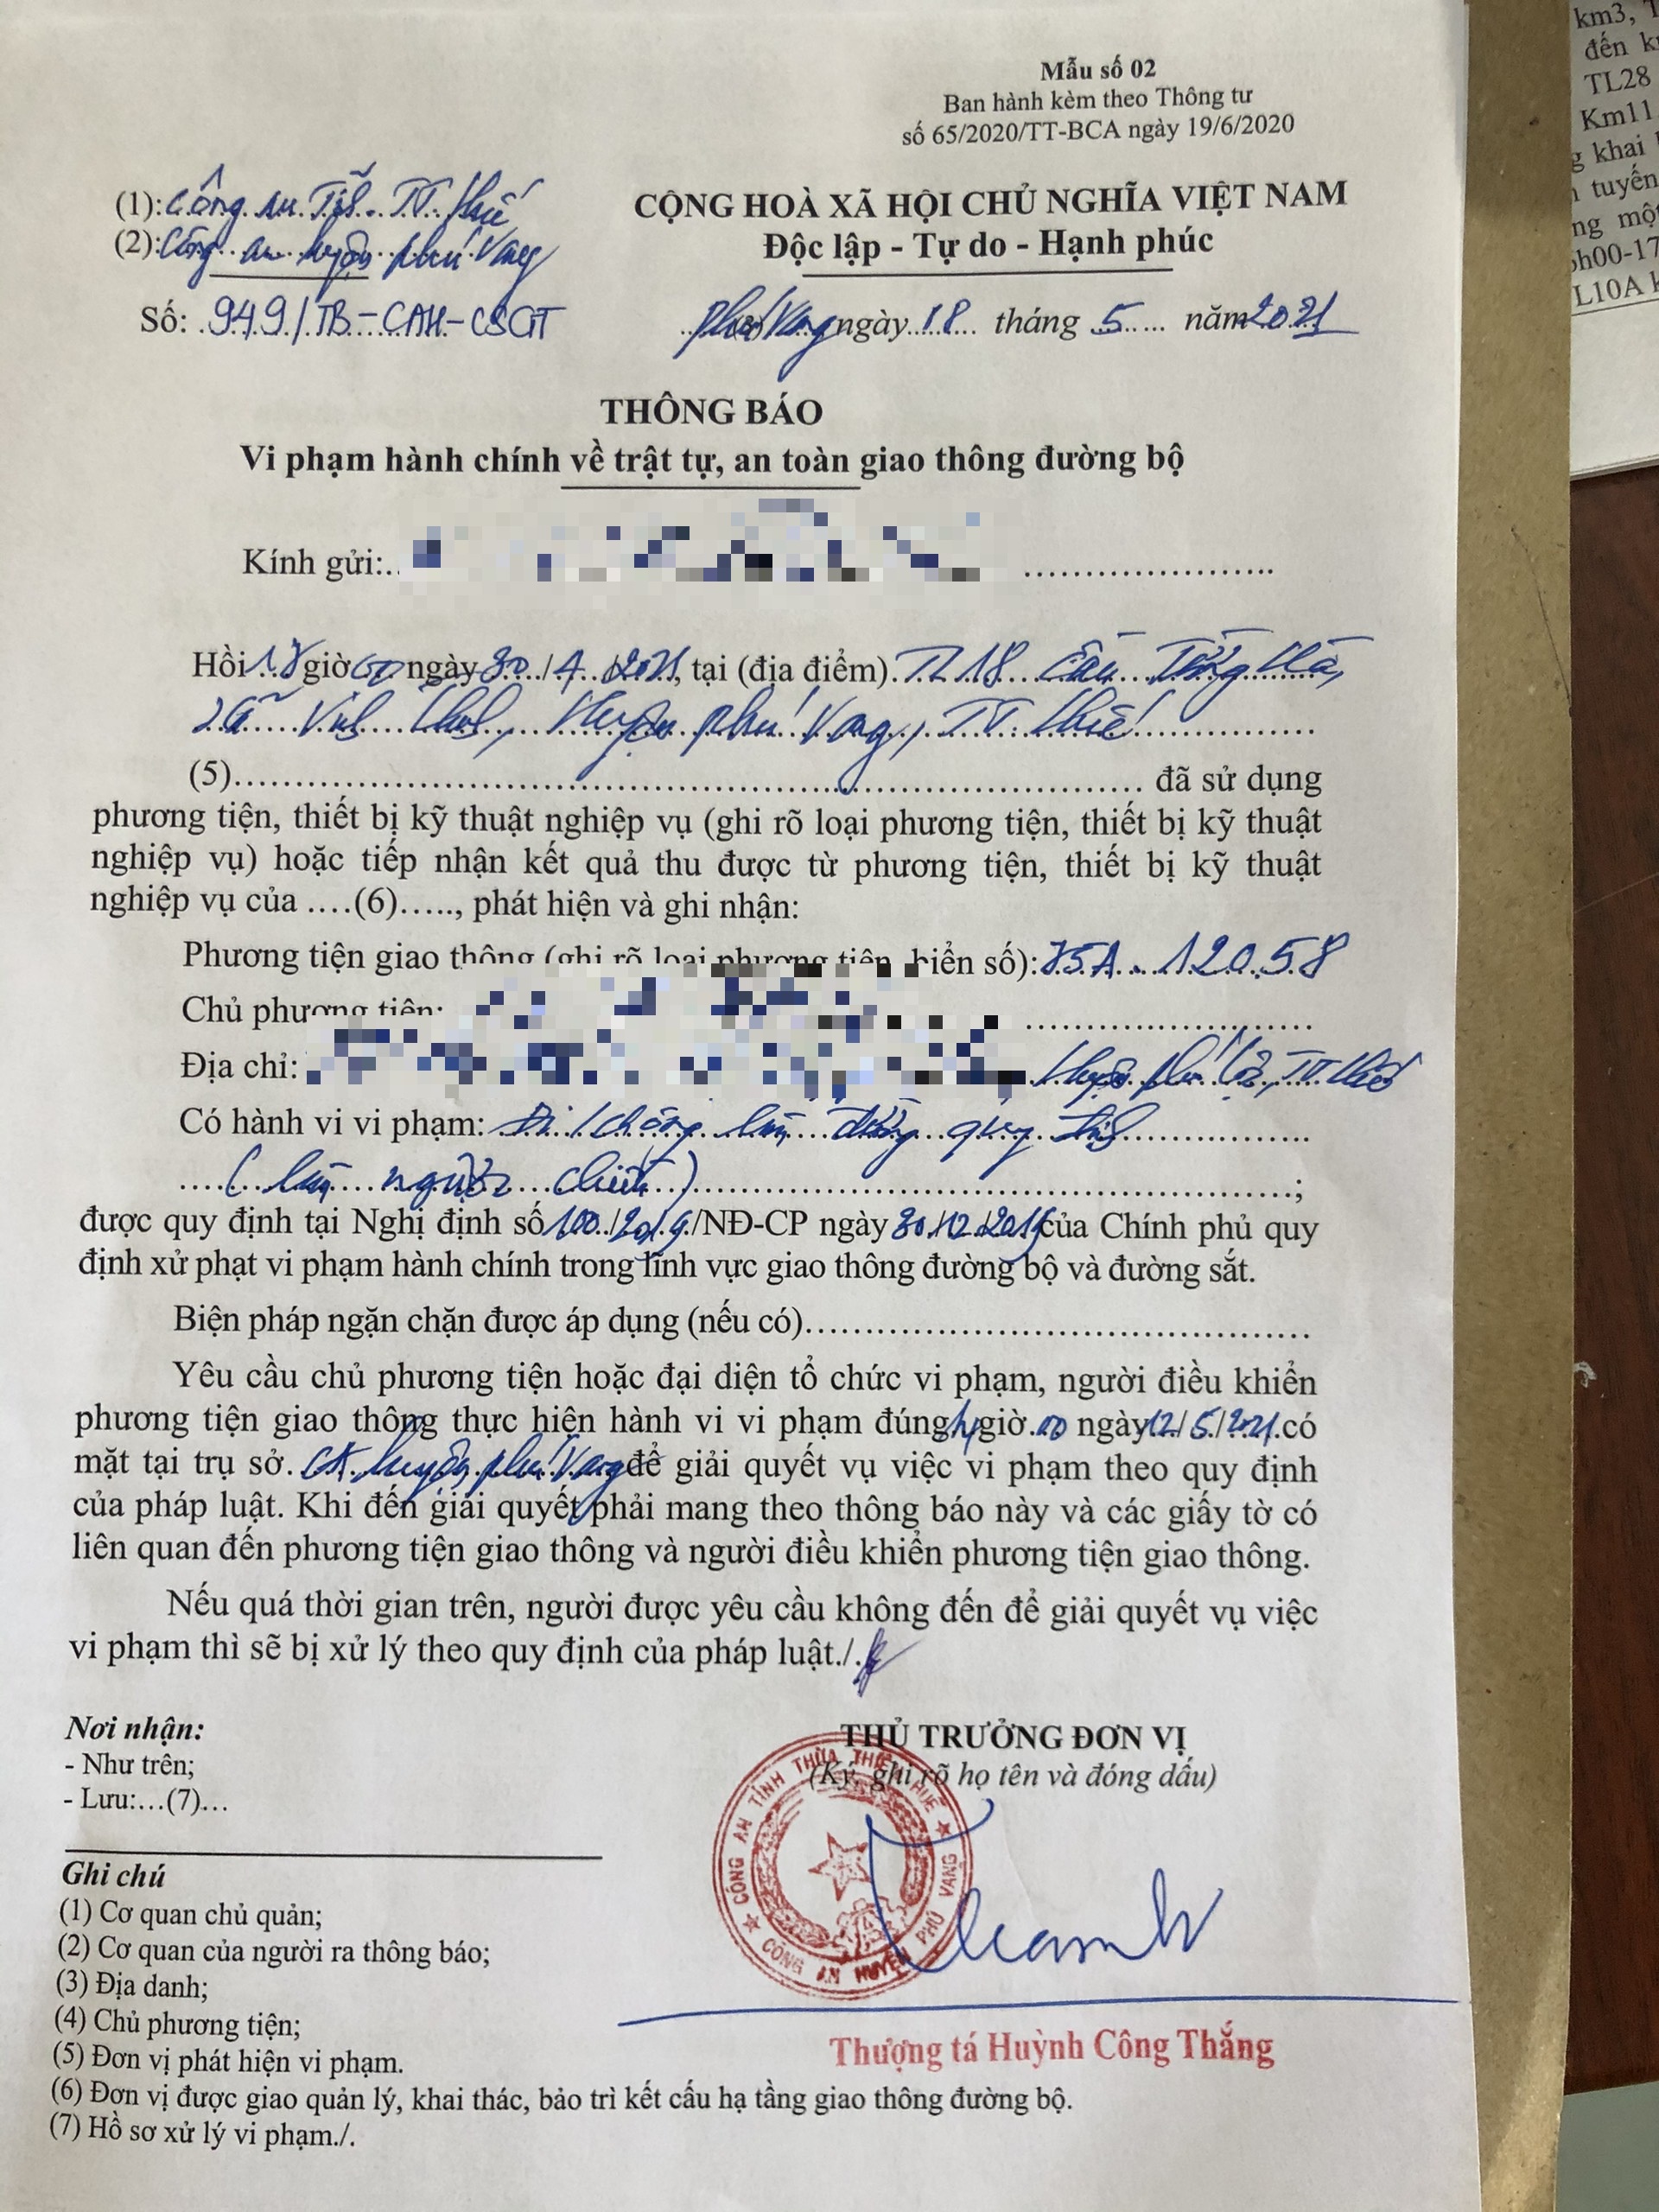 Mẫu số 02
Ban hành kèm theo Thông tư
số 65/2020/TT-BCA ngày 19/6/2020
(1): Công an Tỉnh TT Huế
(2): Công an huyện phú Vang
CỘNG HOÀ XÃ HỘI CHỦ NGHĨA VIỆT NAM
Độc lập - Tự do - Hạnh phúc
Số: 949/TB-CAH-CSGT
Phú Vang ngày 18 tháng 5 năm 2021
THÔNG BÁO
Vi phạm hành chính về trật tự, an toàn giao thông đường bộ
Kính gửi:
Hồi giờ 00 ngày 30/4/2021, tại (địa điểm) TL18
xã Vinh huyện phú Vang, TT Huế
(5) đã sử dụng
phương tiện, thiết bị kỹ thuật nghiệp vụ (ghi rõ loại phương tiện, thiết bị kỹ thuật
nghiệp vụ) hoặc tiếp nhận kết quả thu được từ phương tiện, thiết bị kỹ thuật
nghiệp vụ của ....(6)....., phát hiện và ghi nhận:
Phương tiện giao thông (ghi rõ loại phương tiện, biển số): 75A-12058
Chủ phương tiện:
Địa chỉ: Huyện TT Huế
Có hành vi vi phạm: Đi không đường quy định
(làn ngược chiều);
được quy định tại Nghị định số 100/2019/NĐ-CP ngày 30/12/2019 của Chính phủ quy
định xử phạt vi phạm hành chính trong lĩnh vực giao thông đường bộ và đường sắt.
Biện pháp ngặn chặn được áp dụng (nếu có)
Yêu cầu chủ phương tiện hoặc đại diện tổ chức vi phạm, người điều khiển
phương tiện giao thông thực hiện hành vi vi phạm đúng giờ 00 ngày 12/5/2021 có
mặt tại trụ sở CA huyện phú Vang để giải quyết vụ việc vi phạm theo quy định
của pháp luật. Khi đến giải quyết phải mang theo thông báo này và các giấy tờ có
liên quan đến phương tiện giao thông và người điều khiển phương tiện giao thông.
Nếu quá thời gian trên, người được yêu cầu không đến để giải quyết vụ việc
vi phạm thì sẽ bị xử lý theo quy định của pháp luật./.
Nơi nhận:
- Như trên;
- Lưu:...(7)...
THỦ TRƯỞNG ĐƠN VỊ
(Ký, ghi rõ họ tên và đóng dấu)
CÔNG AN TỈNH THỪA THIÊN HUẾ
CÔNG AN HUYỆN PHÚ VANG
Thượng tá Huỳnh Công Thắng
Ghi chú
(1) Cơ quan chủ quản;
(2) Cơ quan của người ra thông báo;
(3) Địa danh;
(4) Chủ phương tiện;
(5) Đơn vị phát hiện vi phạm.
(6) Đơn vị được giao quản lý, khai thác, bảo trì kết cấu hạ tầng giao thông đường bộ.
(7) Hồ sơ xử lý vi phạm./.
km3,
đến
TL28
Km11
khai
tuyến
h00-17
L10A